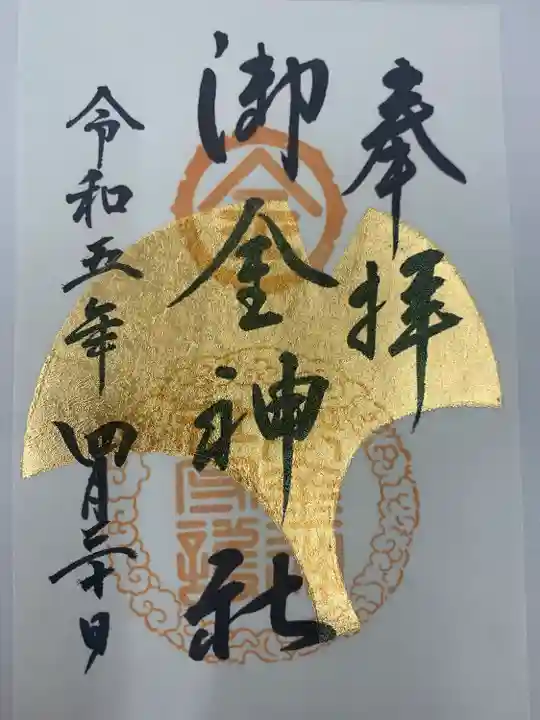 奉拝
御金神社
令和五年四月二十日